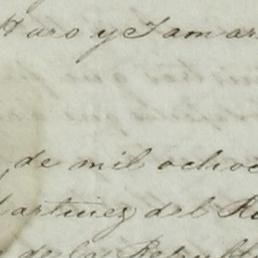 Haro y Tamar
de mil ochoc
artinez del R
de la Repub